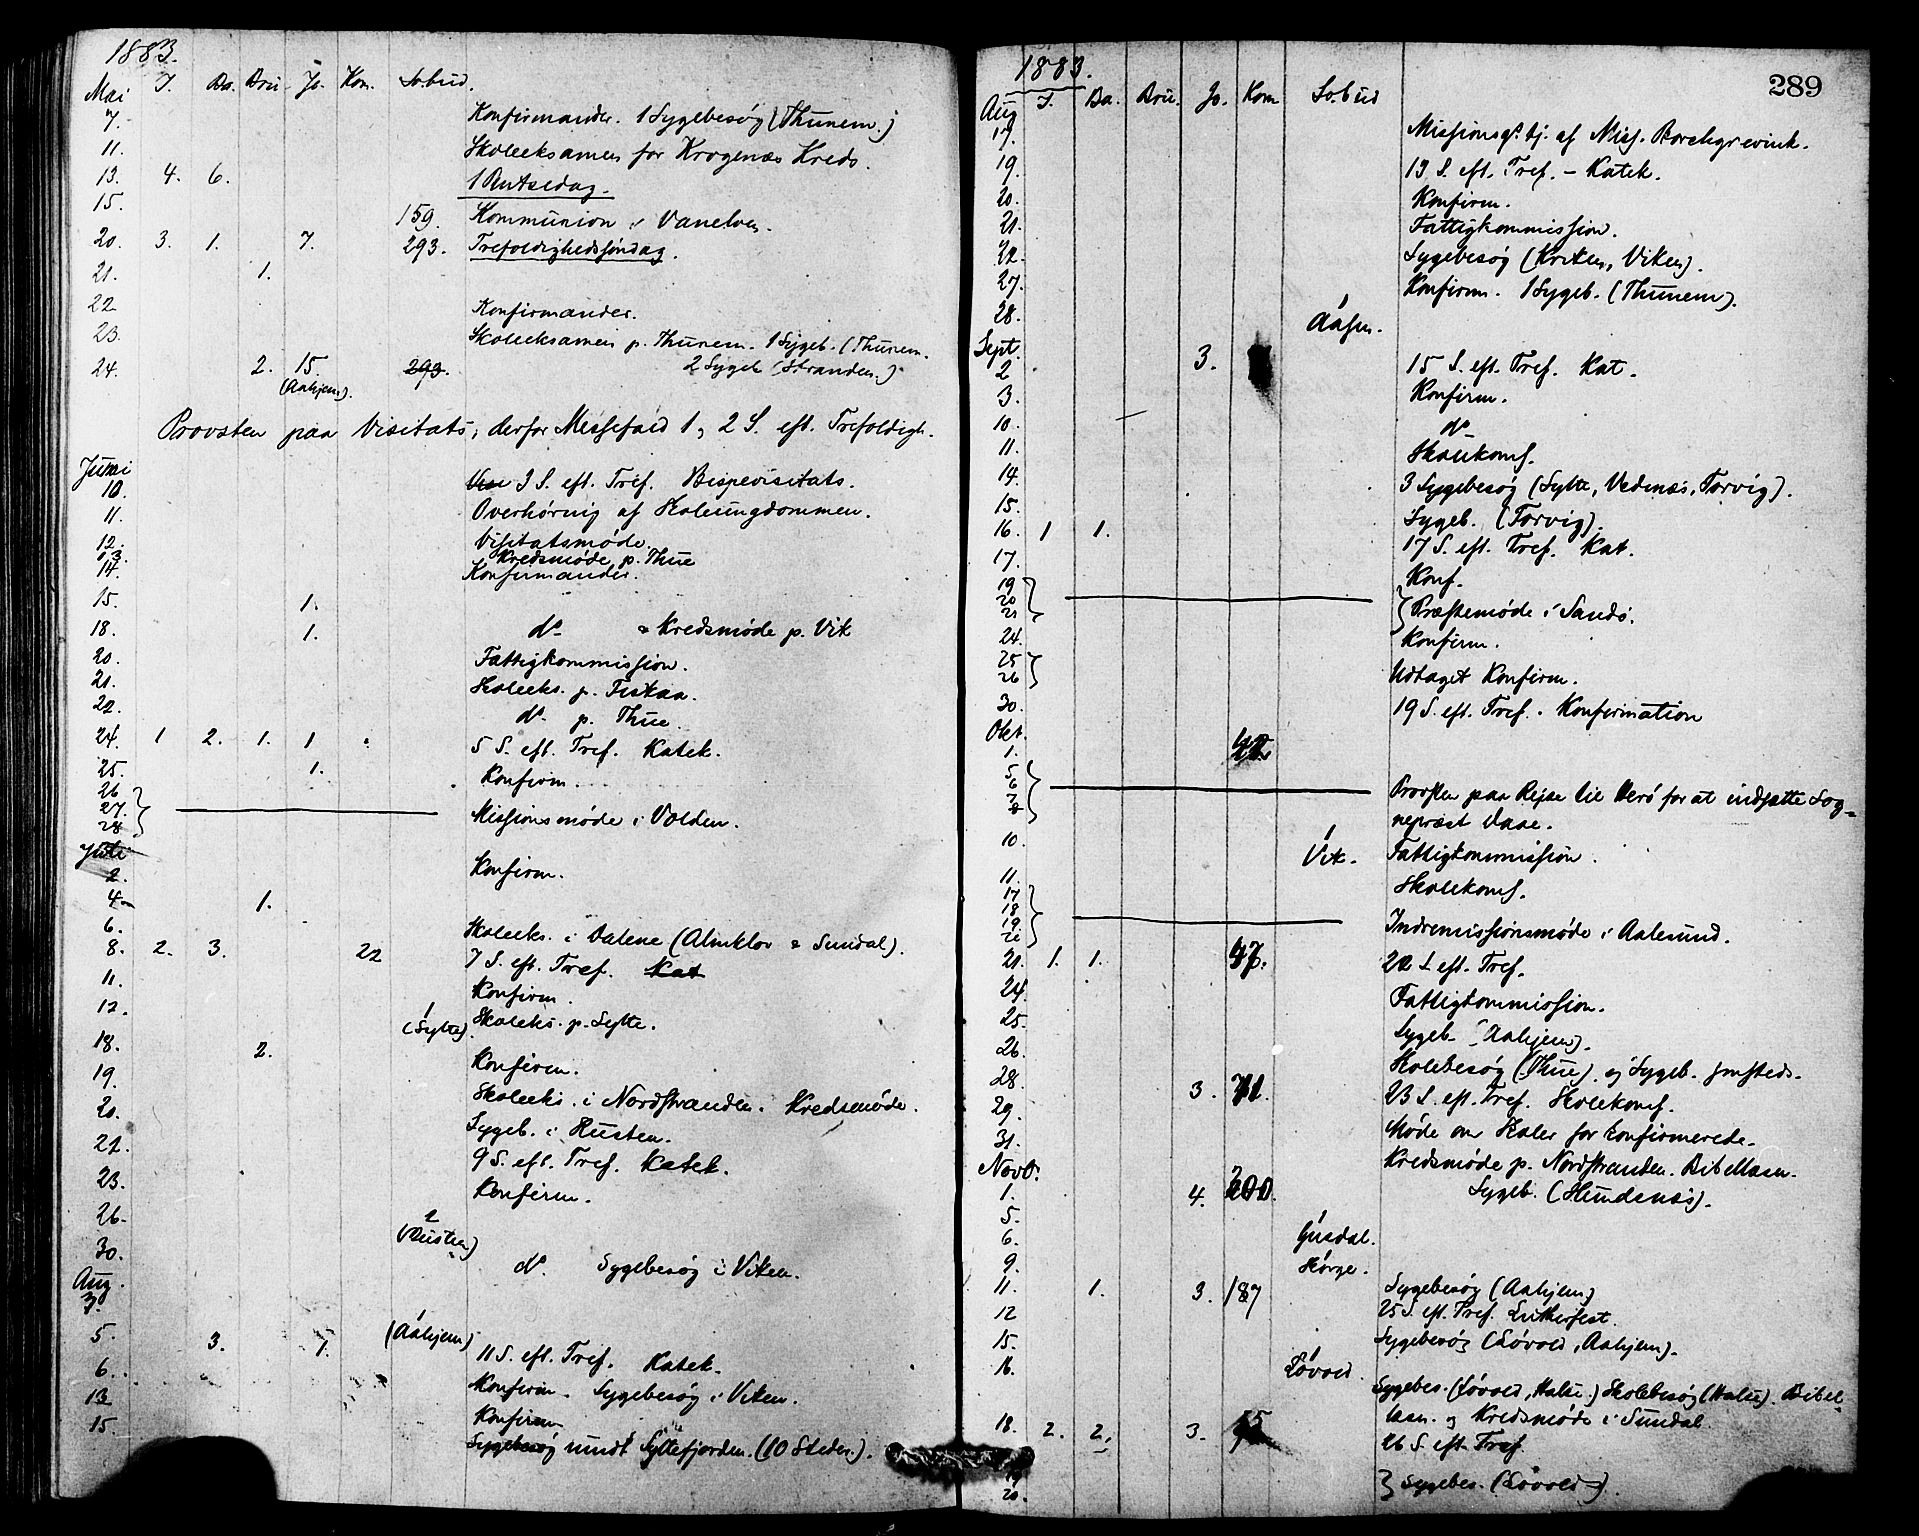 1883.
Mai I. Da. Bru. Jo. Kom. Sobud.
7. Konfirmander. 1 Sygebesøg (Thunem.)
11. Skoleeksamen for Krogenæs Kreds.
13. 4. 6. 1 Pintsedag.
15. 159. Kommunion i Vanelven.
20. 3. 1. 7. 293. Trefoldighedssøndag.
21. 1.
22 Konfirmander.
23. Skoleeksamen p. Thunem. 1 Sygeb. (Thunem.
24. 2. 15. (Aahjem). 293. 2 Sygeb (Stranden.)
Provsten paa Visitats, derfor Messefald 1, 2 S. eft. Trefoldigh.
Juni
10. 3 S. eft. Tref. Bispevisitats.
11. Overhøring af Skoleungdommen.
12. Visitatsmøde.
13. Kredsmøde p. Thue
14. Konfirmander.
15. 1.
18. 1. do Kredsmøde p. Vik
20. Fattigkommission.
21. Skoleeks. p. Fiskaa.
22. do. p. Thue.
24. 1 2. 1. 1 5 S. eft. Tref. Katek.
25. 1. Konfirm.
26
27. Missionsmøde i Volden.
28
Juli
2. Konfirm.
4. 1.
6. Skoleeks. i Dalene (Almklov & Sundal).
8. 2. 3. 22 7 S. eft. Tref. Kat
11. Konfirm.
12. 1 (Sylte). Skoleeks. p. Sylte.
18. 2. Konfirm.
19. Skoleeks. i Nordstranden. Kredsmøde.
20. Sygeb. i Husten.
22. 9 S. eft. Tref. Katek.
23. Konfirm.
26.
30. do. Sygebesøg i Viken.
Aug.
3.
5. 3. 1. (Aahjem) 11 S. eft. Tref. Katek.
6. Konfirm. Sygebesøg i Viken.
13 Konfirm
15. Sygebesøg rundt Syltefjorden. (10 Steder).
1883. 289
Aug I. Da. Bru. Jo. Kom Sobud
17. Missionsgstj. af Miss. Borchgrevink.
19. 13 S. eft. Tref. - Katek.
20. Konfirm.
21. Fattigkommission.
22. Sygebesøg (Kriken, Viken).
27. Konfirm. 1 Sygeb. (Thunem).
28. 1
Sept.
2 3. 15 S. eft. Tref. Kat.
3. Konfirm.
10. do
11. Skolekomf.
14. 3 Sygebesøg (Sylte, Vedenæs, Torvig).
15. Sygeb. (Torvig).
16. 1 1. 17 S. eft. Tref. Kat.
17. Konf.
19
20 Præstemøde i Sandø.
21
24. Konfirm.
25
26 Udtaget Konfirm.
30. 19 S. eft. Tref. Konfirmation
Okt.
1.
5
6 Provsten paa Rejse til Herö for at indsætte Sog-
7
8 nepræst Daae.
10. 1 Vik. Fattigkommission.
11. Skolekomf.
17
18
19. Indremissionsmøde i Aalesund.
20
21. 1. 1. 47. 22 S. eft. Tref.
24. Fattigkommission.
25. Sygeb. (Aahjem).
26. Skolebesøg (Thue) og Sygeb. smsteds.
28. 3. 71. 23 S. eft. Tref. Skolekomf.
29. Møde om Skoler for konfirmerede.
31. Kredsmøde p. Nordstranden. Bibellæsn.
Novb.
1. 4. 200. Sygeb. (Hundenæs).
5.
6. 1 Gusdal.
9.
11. 1. 3. 187 Sygebesøg (Aahjem)
12 25 S. eft. Tref. Lutherfest.
15. Sygebesøg (Løvold, Aahjem).
16. 1 Løvold. Sygebes. (Løvold, Halse.) Skolebesøg (Halse). Bibel-
læsn. og Kredsmøde i Sundal.
18. 2. 2. 3. 26 S. eft. Tref.
19
20. Sygebes. (Løvold).